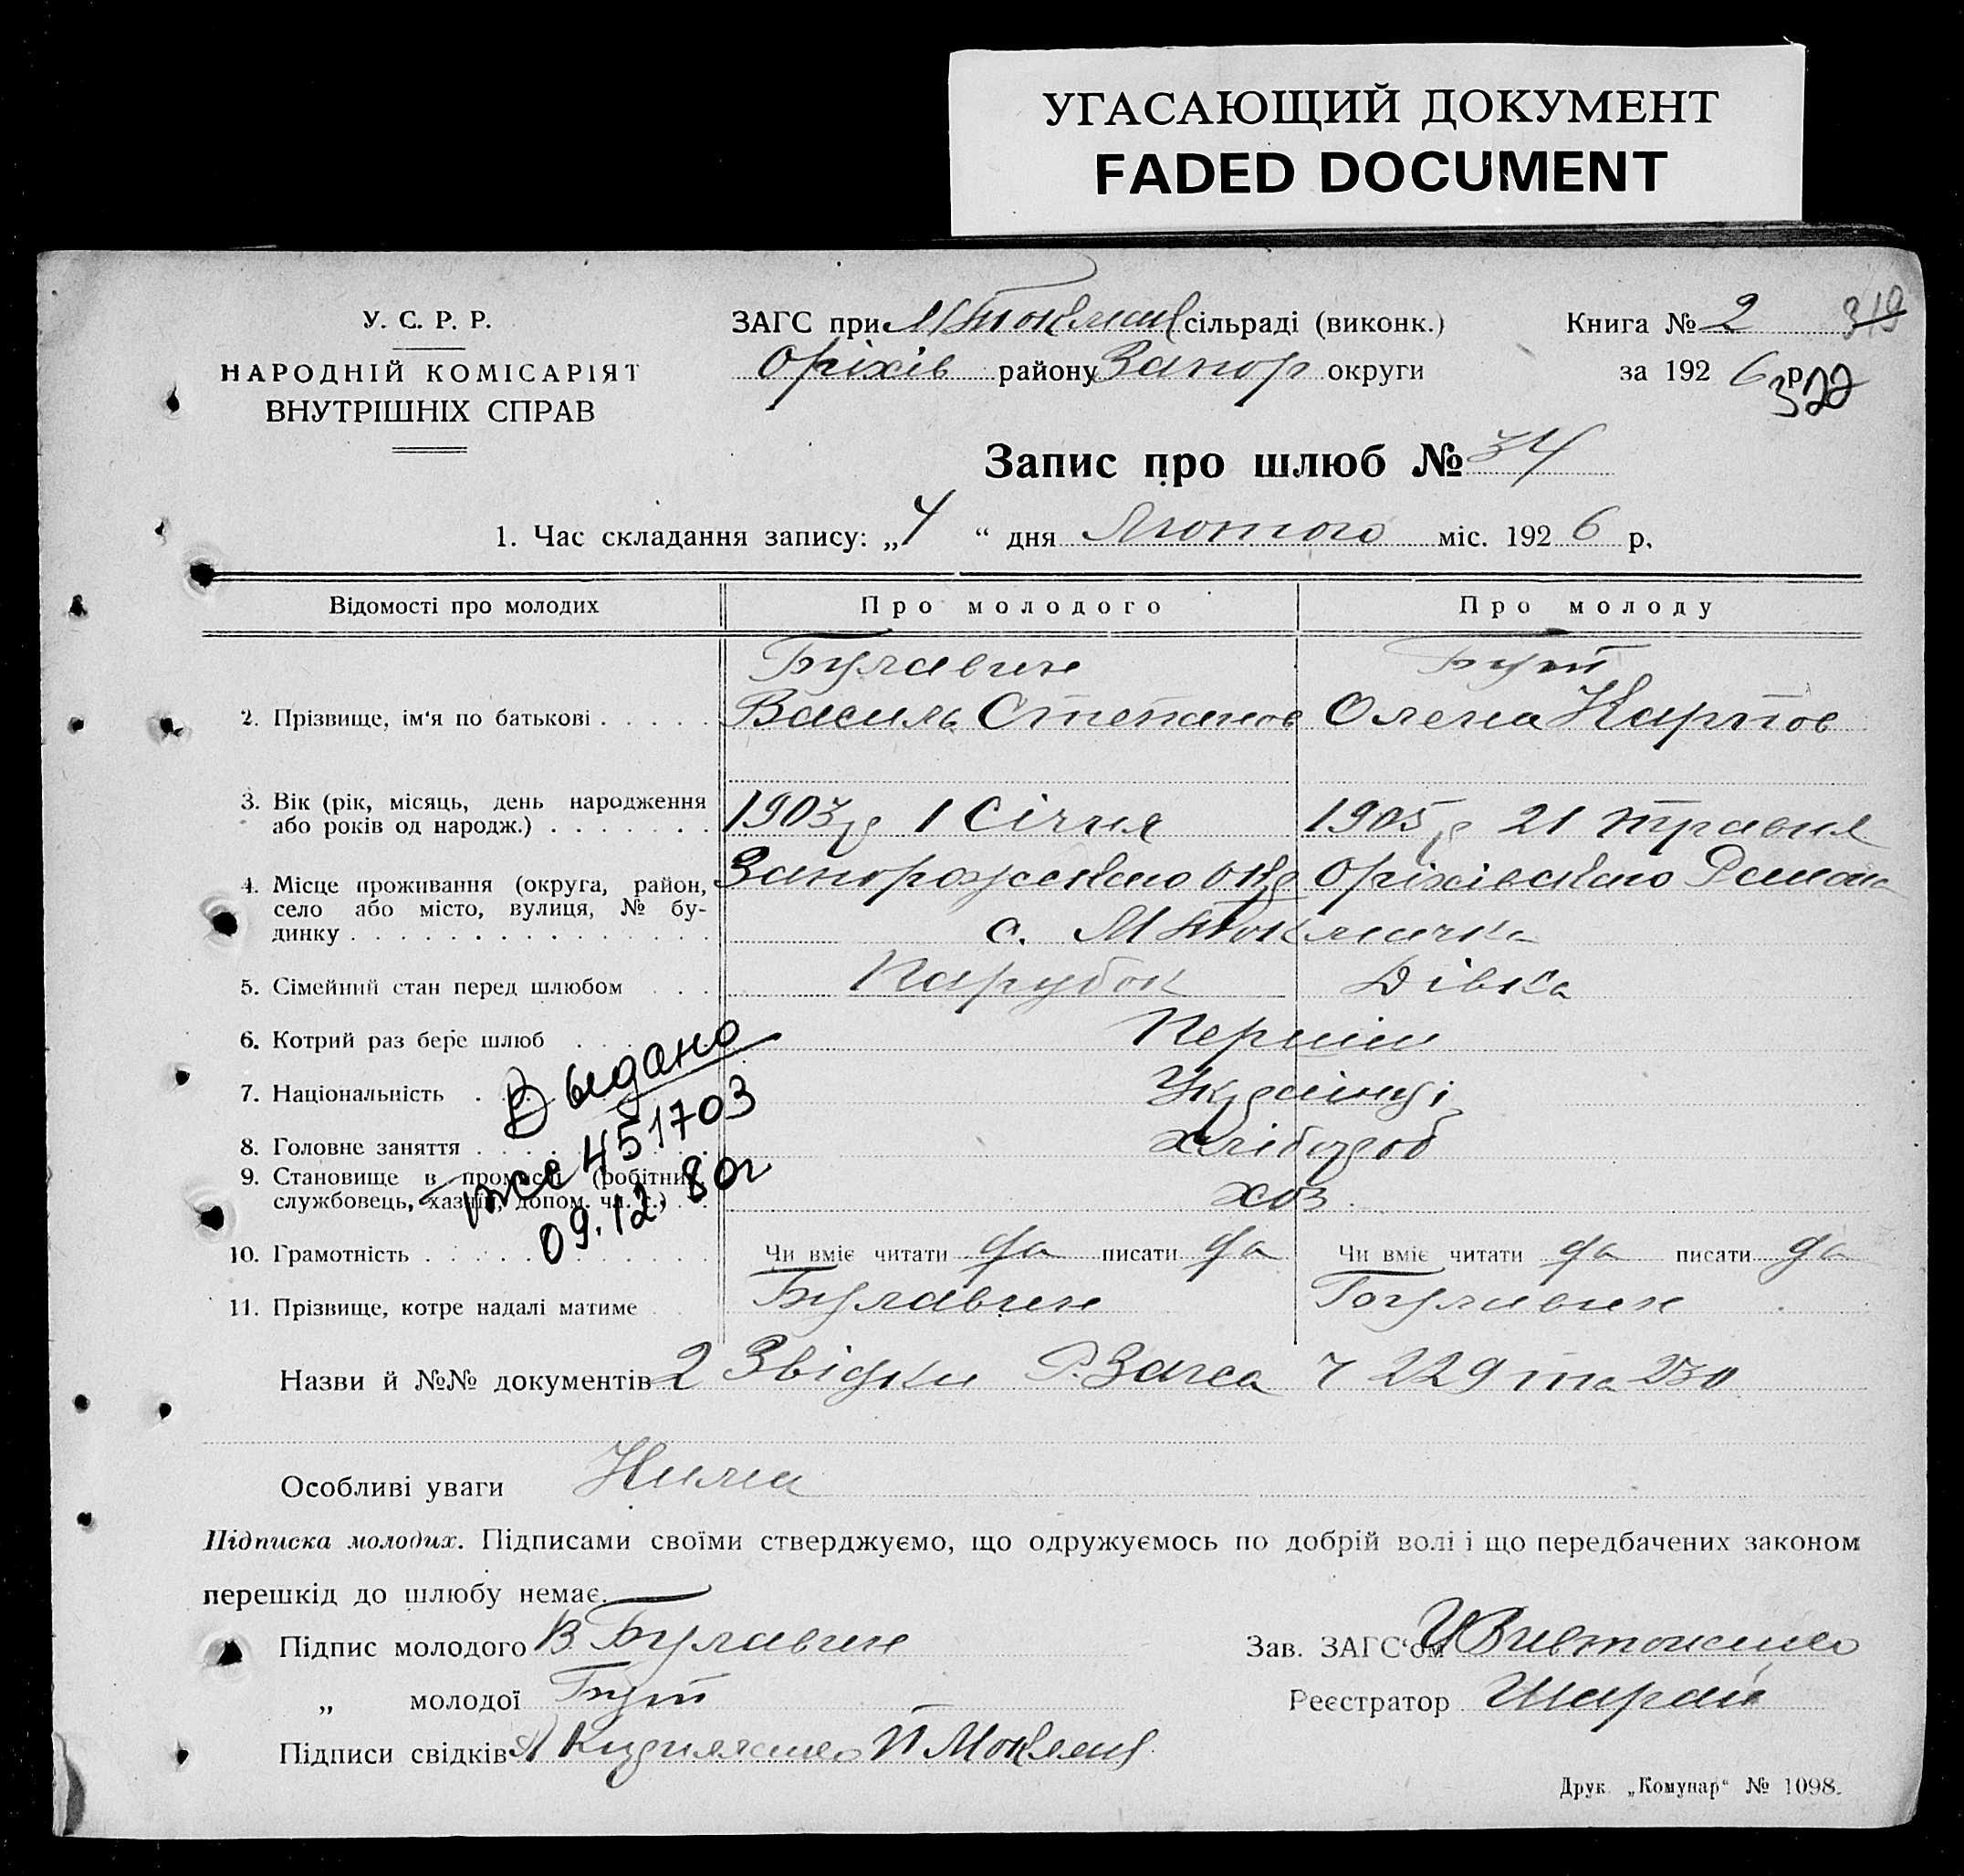 УГАСАЮЩИЙ ДОКУМЕНТ
FADED DOCUMENT
У. С. Р. Р.
НАРОДНІЙ КОМІСАРІЯТ
ВНУТРІШНІХ СПРАВ
ЗАГС при М Токмац сільраді (виконк.)
Оріхів району Запор округи
Книга № 2 319
за 192 6 р. 322
Запис про шлюб № 34
1. Час складання запису: „4“ дня Лютого міс. 192 6 р.
Відомості про молодих Про молодого Про молоду
Булавин Бут
2. Прізвище, ім'я по батькові Василь Степанов Олена Карпов
3. Вік (рік, місяць, день народження
або років од народж.) 1903 р 1 Січня 1905 р 21 травня
4. Місце проживання (округа, район, Запорожського окр Оріхівського Района
село або місто, вулиця, № бу-
динку с. М Токмачка
5. Сімейний стан перед шлюбом Парубок Дівка
6. Котрий раз бере шлюб Перший
7. Національність Українці
8. Головне заняття хлібороб
9. Становище в промислі (робітник,
службовець, хазяїн, допом. чл. с.) хоз
Выдано
451703
09.12.80г
10. Грамотність Чи вміє читати да писати да Чи вміє читати да писати да
11. Прізвище, котре надалі матиме Булавин Булавин
Назви й №№ документів 2 Звідки Р. Загса ч 229 та 230
Особливі уваги Нима
Підписка молодих. Підписами своїми стверджуємо, що одружуємось по добрій волі і що передбачених законом
перешкід до шлюбу немає.
Підпис молодого В Булавин
Зав. ЗАГС'ом
„ молодої Бут
Реєстратор Шарай
Підписи свідків
Друк. „Комунар“ № 1098.